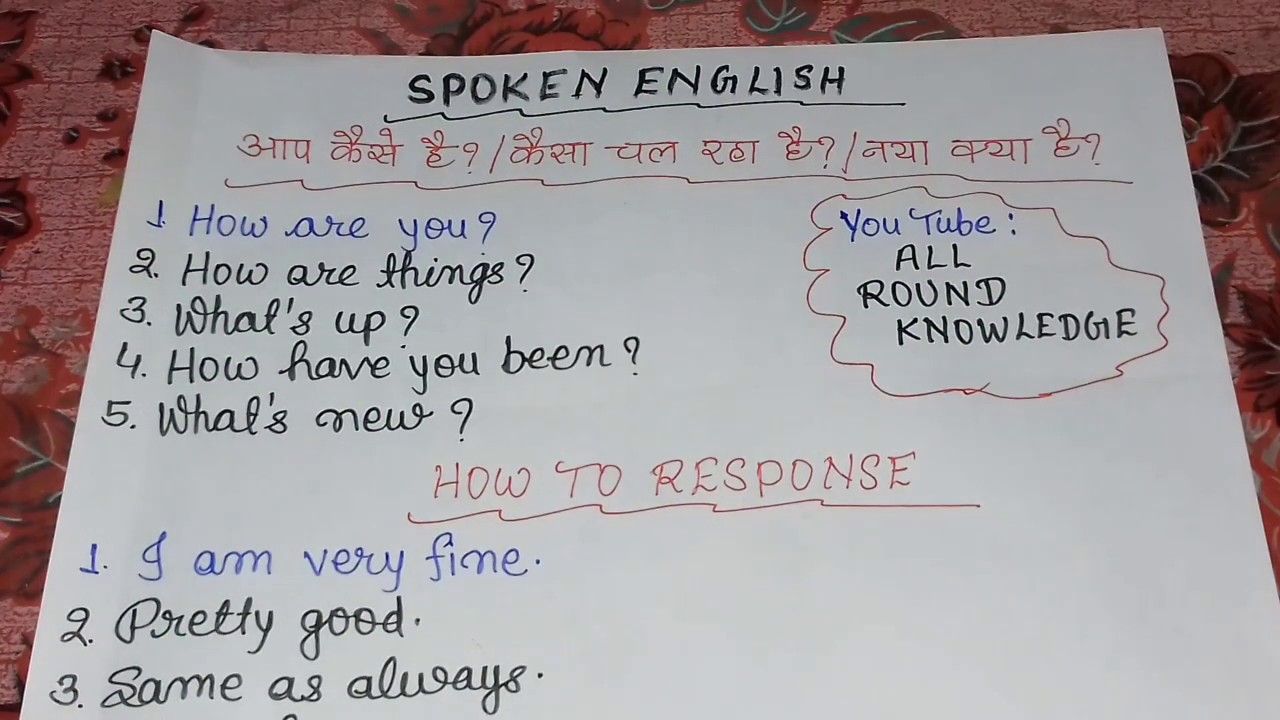 SPOKEN ENGLISH
आप कैसे है?/कैसा चल रहा है?/नया क्या है?
1. How are you?
2. How are things?
3. What's up?
4. How have you been?
5. What's new?
You Tube:
ALL
ROUND
KNOWLEDGE
HOW TO RESPONSE
1. I am very fine.
2. Pretty good.
3. Same as always.